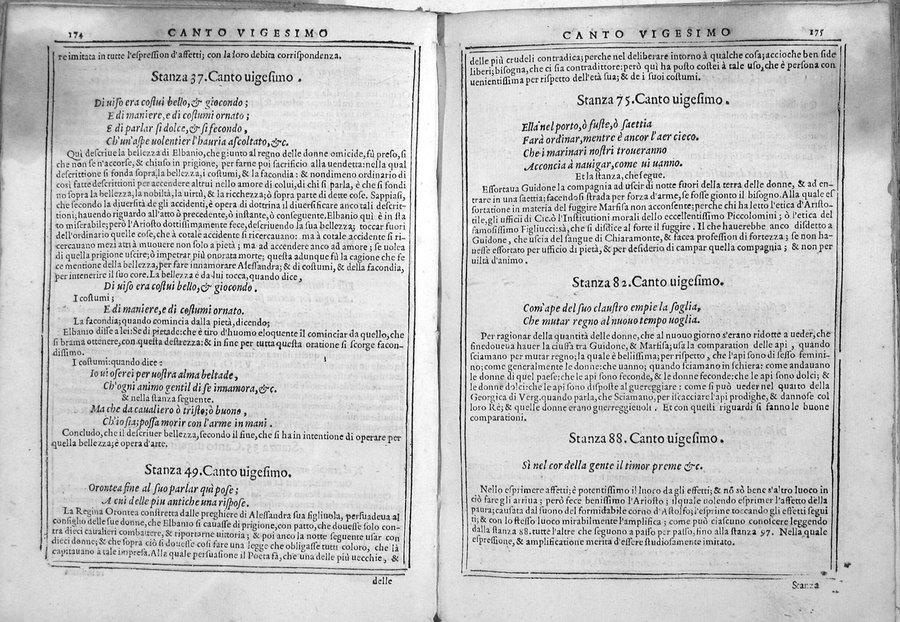 174 CANTO VIGESIMO
re imitata in tutte l'espression d'affetti; con la loro debita corrispondenza.
Stanza 37. Canto uigesimo.
Di uiso era costui bello, & giocondo;
E di maniere, e di costumi ornato;
E di parlar si dolce, & si fecondo,
Ch'un'aspe uolentier l'hauria ascoltato, &c.
Quì descriue la bellezza di Elbanio, che giunto al regno delle donne omicide, fù preso, si
che non se n'accorse, & chiuso in prigione, per farne poi sacrificio alla uendeta: nella qual
descrittione si fonda sopra la bellezza, i costumi, & la facondia: & nondimeno ordinario di
così fatte descrittioni per accendere altrui nello amore di colui, di chi si parla, è che si fondi
no sopra la bellezza, la nobiltà, la uirtù, & la ricchezza; ò sopra parte di dette cose. Sappiasi,
che secondo la diuersità de gli accidenti, è opera di dottrina il diuersificare anco tali descrit-
tioni, hauendo riguardo all'atto ò precedente, ò instante, ò conseguente. Elbanio quì è in sta
to miserabile; però l'Ariosto dottissimamente fece, descriuendo la sua bellezza; toccar fuori
dell'ordinario quelle cose, che à cotale accidente si ricercauano: ma à cotale accidente si ri-
cercauano mezi atti à muouere non solo a pietà; ma ad accendere anco ad amore; se uolea
di quella prigione uscire; ò impetrar più onorata morte; questa adunque fù la cagione che fe
ce mentione della bellezza, per fare innamorare Alessandra; & di costumi, & della facondia,
per intenerire il suo core. La bellezza è da lui tocca, quando dice,
Di uiso era costui bello, & giocondo.
I costumi;
E di maniere, e di costumi ornato.
La facondia; quando comincia dalla pietà, dicendo;
Elbanio disse a lei: Se di pietade: che è tiro d'huomo eloquente il cominciar da quello, che
si brama ottenere, con questa destrezza: & in fine per tutta questa oratione si scorge facon-
dissimo.
I costumi: quando dice:
Io ui oserei per uostra alma beltade,
Ch'ogni animo gentil di se innamora, &c.
& nella stanza seguente.
Ma che da caualiero ò tristo, ò buono,
Ch'io sia; possa morir con l'arme in mani.
Concludo, che il descriuer bellezza, secondo il fine, che si ha in intentione di operare per
quella bellezza; è opera d'arte.
Stanza 49. Canto uigesimo.
Orontea fine al suo parlar quì pose;
A cui delle piu antiche una rispose.
La Regina Orontea constretta dalle preghiere di Alessandra sua figliuola, persuadeua al
consiglio delle sue donne, che Elbanio si cauasse di prigione, con patto, che douesse solo con-
tra dieci caualieri combattere, & riportarne uittoria; & poi anco la notte seguente usar con
dieci donne; & che sopra ciò si douesse così fare una legge che obligasse tutti coloro, che là
capitauano à tale impresa. Alla quale persuasione il Poeta fà, che una delle più uecchie, &
delle
CANTO VIGESIMO 175
delle più crudeli contradica; perche nel deliberare intorno à qualche cosa; accioche ben side
liberi; bisogna, che ci sia contradittore; però quì ha posto costei à tale uso, che è persona con
uenientissima per rispetto dell'età sua; & de i suoi costumi.
Stanza 75. Canto uigesimo.
Ella nel porto, ò fuste, ò saettia
Farà ordinar, mentre è ancor l'aer cieco.
Che i marinari nostri troueranno
Acconcia à nauigar, come ui uanno.
Et la stanza, che segue.
Essortaua Guidone la compagnia ad uscir di notte fuori della terra delle donne, & ad en-
trare in una saettia; facendosi strada per forza d'arme, se fosse gionto il bisogno. Alla quale es
sortatione in materia del fuggire Marfisa non acconsente; perche chi ha letto l'etica d'Aristo-
tile, gli ufficij di Cic. ò l'Institutioni morali dello eccellentissimo Piccolomini; ò l'etica del
famosissimo Figliucci: sà, che si disdice al forte il fuggire. Il che hauerebbe anco disdetto a
Guidone, che uscia del sangue di Chiaramonte, & facea professione di fortezza; se non ha-
uesse essortato per ufficio di pietà, & per desiderio di campar quella compagnia; & non per
uiltà d'animo.
Stanza 82. Canto uigesimo.
Com'ape del suo claustro empie la foglia,
Che mutar regno al nuouo tempo uoglia.
Per ragionar della quantità delle donne, che al nuouo giorno s'erano ridotte a ueder, che
fine doueua hauer la ciuffa tra Guidone, & Marfisa; usa la comparation delle api, quando
sciamano per mutar regno; la quale è bellissima; per rispetto, che l'api sono di sesso femini-
no; come generalmente le donne: che uanno; quando sciamano in schiera: come andauano
le donne di quel paese: che le api sono feconde, & le donne feconde: che le api sono dolci; &
le donne dolci: che le api sono disposte al guerreggiare: come si può ueder nel quarto della
Georgica di Verg. quando parla, che Sciamano, per iscacciare l'api prodighe, & dannose col
loro Rè; & quelle donne erano guerreggieuoli. Et con questi riguardi si fanno le buone
comparationi.
Stanza 88. Canto uigesimo.
Sì nel cor della gente il timor preme &c.
Nello esprimere affetti; è potentissimo il luoco da gli effetti; & nō sò bene s'altro luoco in
ciò fare gli arriua; però fece benissimo l'Ariosto; il quale uolendo esprimer l'affetto della
paura; causata dal suono del formidabile corno d'Astolfo; l'esprime toccando gli effetti segui
ti; & con lo stesso luoco mirabilmente l'amplifica; come può ciascuno conoscere leggendo
dalla stanza 88. tutte l'altre che seguono a passo per passo, fino alla stanza 97. Nella quale
espressione, & amplificatione merita d'essere studiosamente imitato.
Stanza